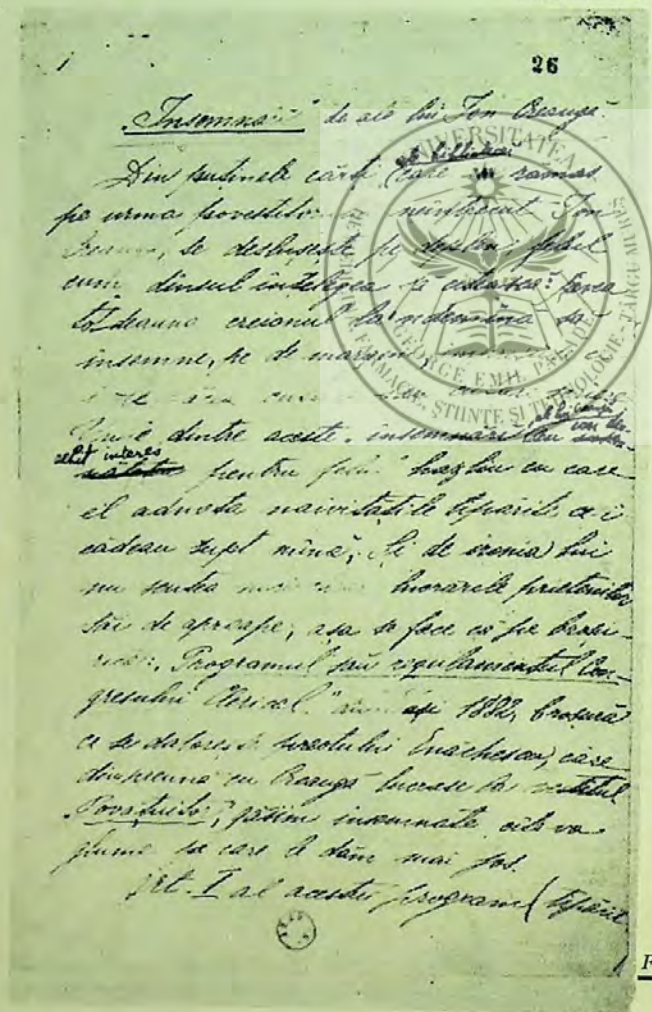 26
„Însemnări” de ale lui Ion Creangă.
ale bibliotecii
Din puținele cărți care au rămas
pe urma povestitorului neîntrecut Ion
Creangă, se deslușește pe deplin felul
cum dînsul înțelegea să citească: avea
totdeauna creionul la'ndemînă să
însemne, pe de margini
Unele dintre aceste însemnări au
altfel interes
pentru felul hazliu cu care
el adnota naivitățile tipărite ce-i
cădeau supt mînă; și de ironia lui
nu scutea nici lucrările prietenilor
săi de aproape; așa se face că pe broșu-
rica: „Programul sau regulamentul Con-
gresului Clerical” din 1882, broșură
ce se datorește preotului Enăchescu, care
dimpreună cu Creangă lucrase la vestitul
„Povățuitor”, găsim însemnate cîteva
glume pe care le dăm mai jos.
Art. I al acestui program (tipărit
UNIVERSITATEA
GEORGE EMIL PALADE
FARMACIE, ȘTIINȚE ȘI TEHNOLOGIE
TÂRGU MUREȘ
F